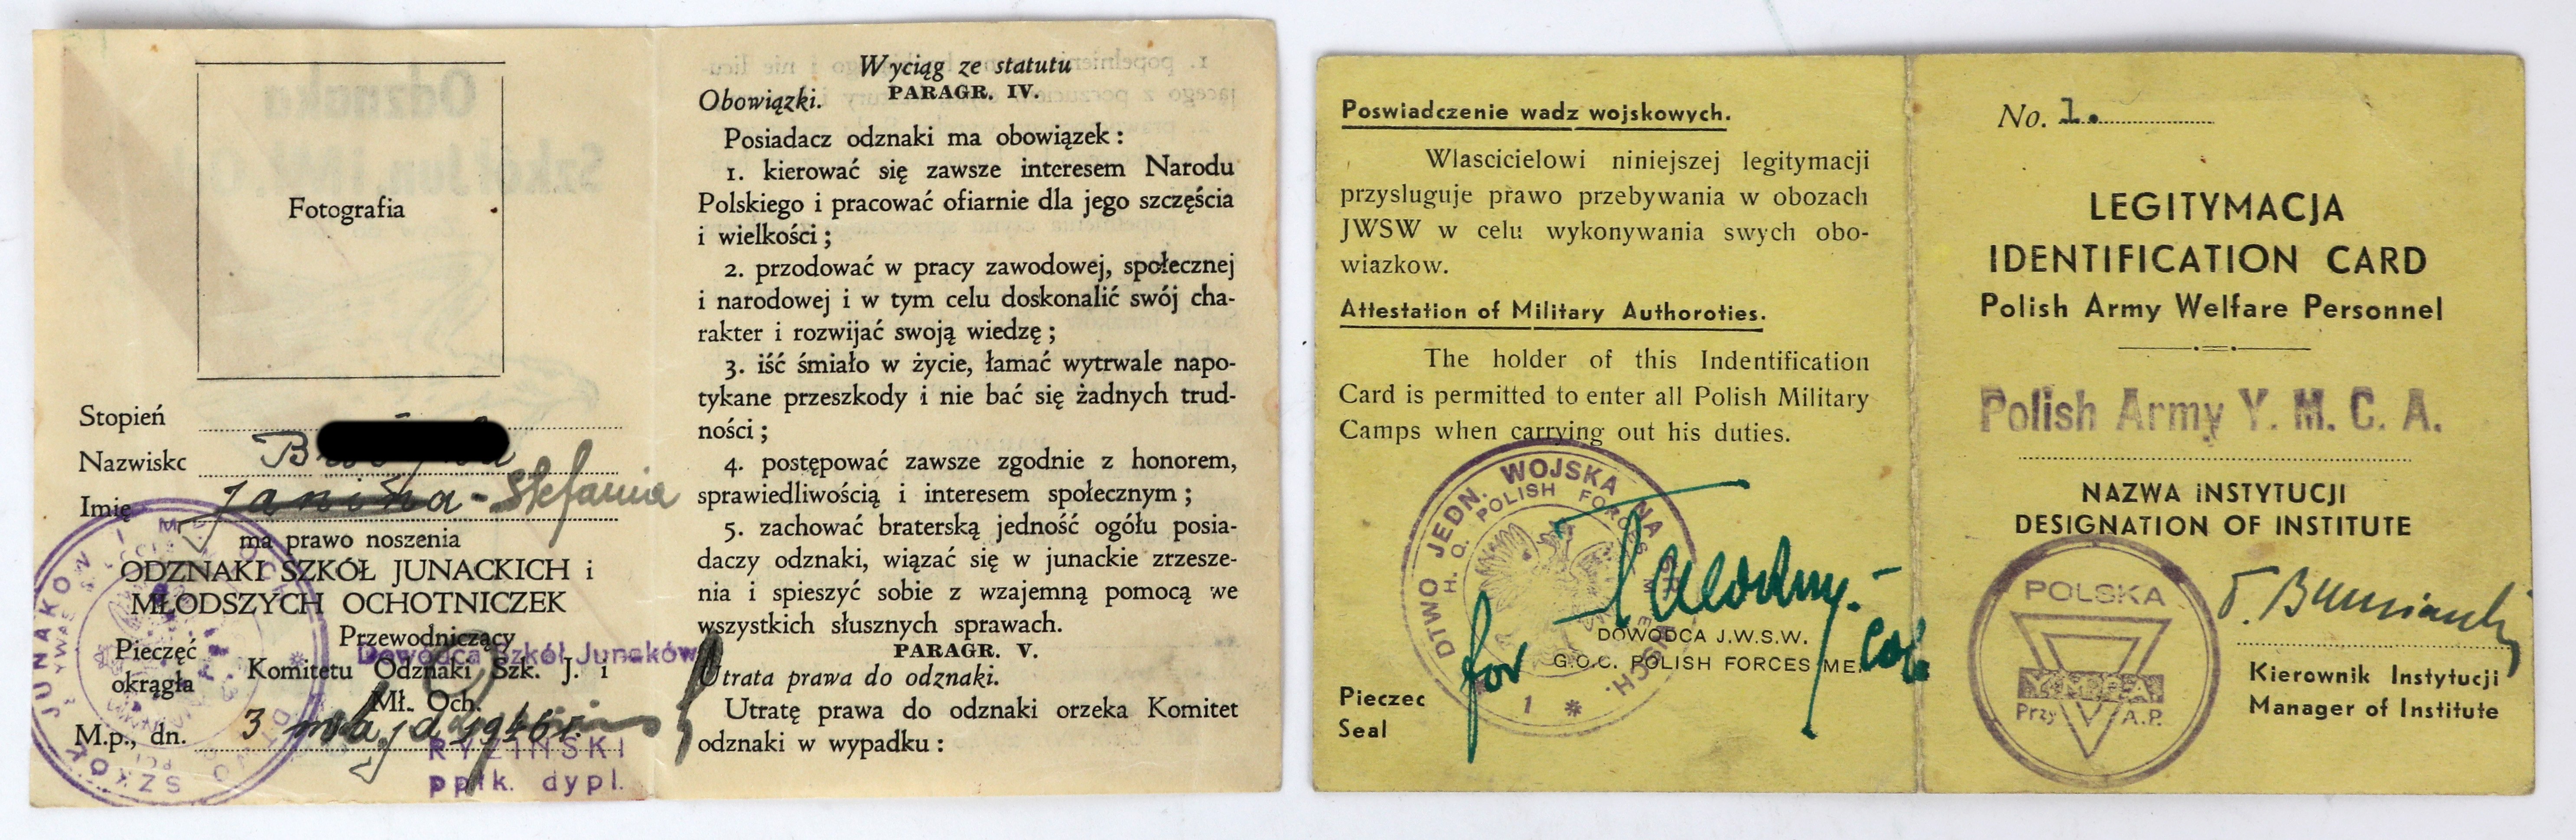 Fotografia
Stopień
Nazwisko
Imię Janina - Stefania
ma prawo noszenia
ODZNAKI SZKÓŁ JUNACKICH i
MŁODSZYCH OCHOTNICZEK
Pieczęć
okrągła
Przewodniczący
Dowódca Szkół Junaków
Komitetu Odznaki Szk. J. i
Mł. Och.
M.p., dn. 3 maja 1946 r.
RYZIŃSKI
ppłk. dypl.
Wyciąg ze statutu
Obowiązki. PARAGR. IV.
Posiadacz odznaki ma obowiązek :
1. kierować się zawsze interesem Narodu
Polskiego i pracować ofiarnie dla jego szczęścia
i wielkości ;
2. przodować w pracy zawodowej, społecznej
i narodowej i w tym celu doskonalić swój cha-
rakter i rozwijać swoją wiedzę ;
3. iść śmiało w życie, łamać wytrwale napo-
tykane przeszkody i nie bać się żadnych trud-
ności ;
4. postępować zawsze zgodnie z honorem,
sprawiedliwością i interesem społecznym ;
5. zachować braterską jedność ogółu posia-
daczy odznaki, wiązać się w junackie zrzesze-
nia i spieszyć sobie z wzajemną pomocą we
wszystkich słusznych sprawach.
PARAGR. V.
Utrata prawa do odznaki.
Utratę prawa do odznaki orzeka Komitet
odznaki w wypadku :
Poswiadczenie wadz wojskowych.
Wlascicielowi niniejszej legitymacji
przysluguje prawo przebywania w obozach
JWSW w celu wykonywania swych obo-
wiazkow.
Attestation of Military Authoroties.
The holder of this Indentification
Card is permitted to enter all Polish Military
Camps when carrying out his duties.
DTWO JEDN. WOJSKA NA
H. Q. POLISH FORCES
1
for
DOWODCA J.W.S.W.
G.O.C. POLISH FORCES ME.
Pieczec
Seal
No. 1.
LEGITYMACJA
IDENTIFICATION CARD
Polish Army Welfare Personnel
Polish Army Y. M. C. A.
NAZWA INSTYTUCJI
DESIGNATION OF INSTITUTE
POLSKA
Y.M.C.A.
Przy A.P.
Kierownik Instytucji
Manager of Institute